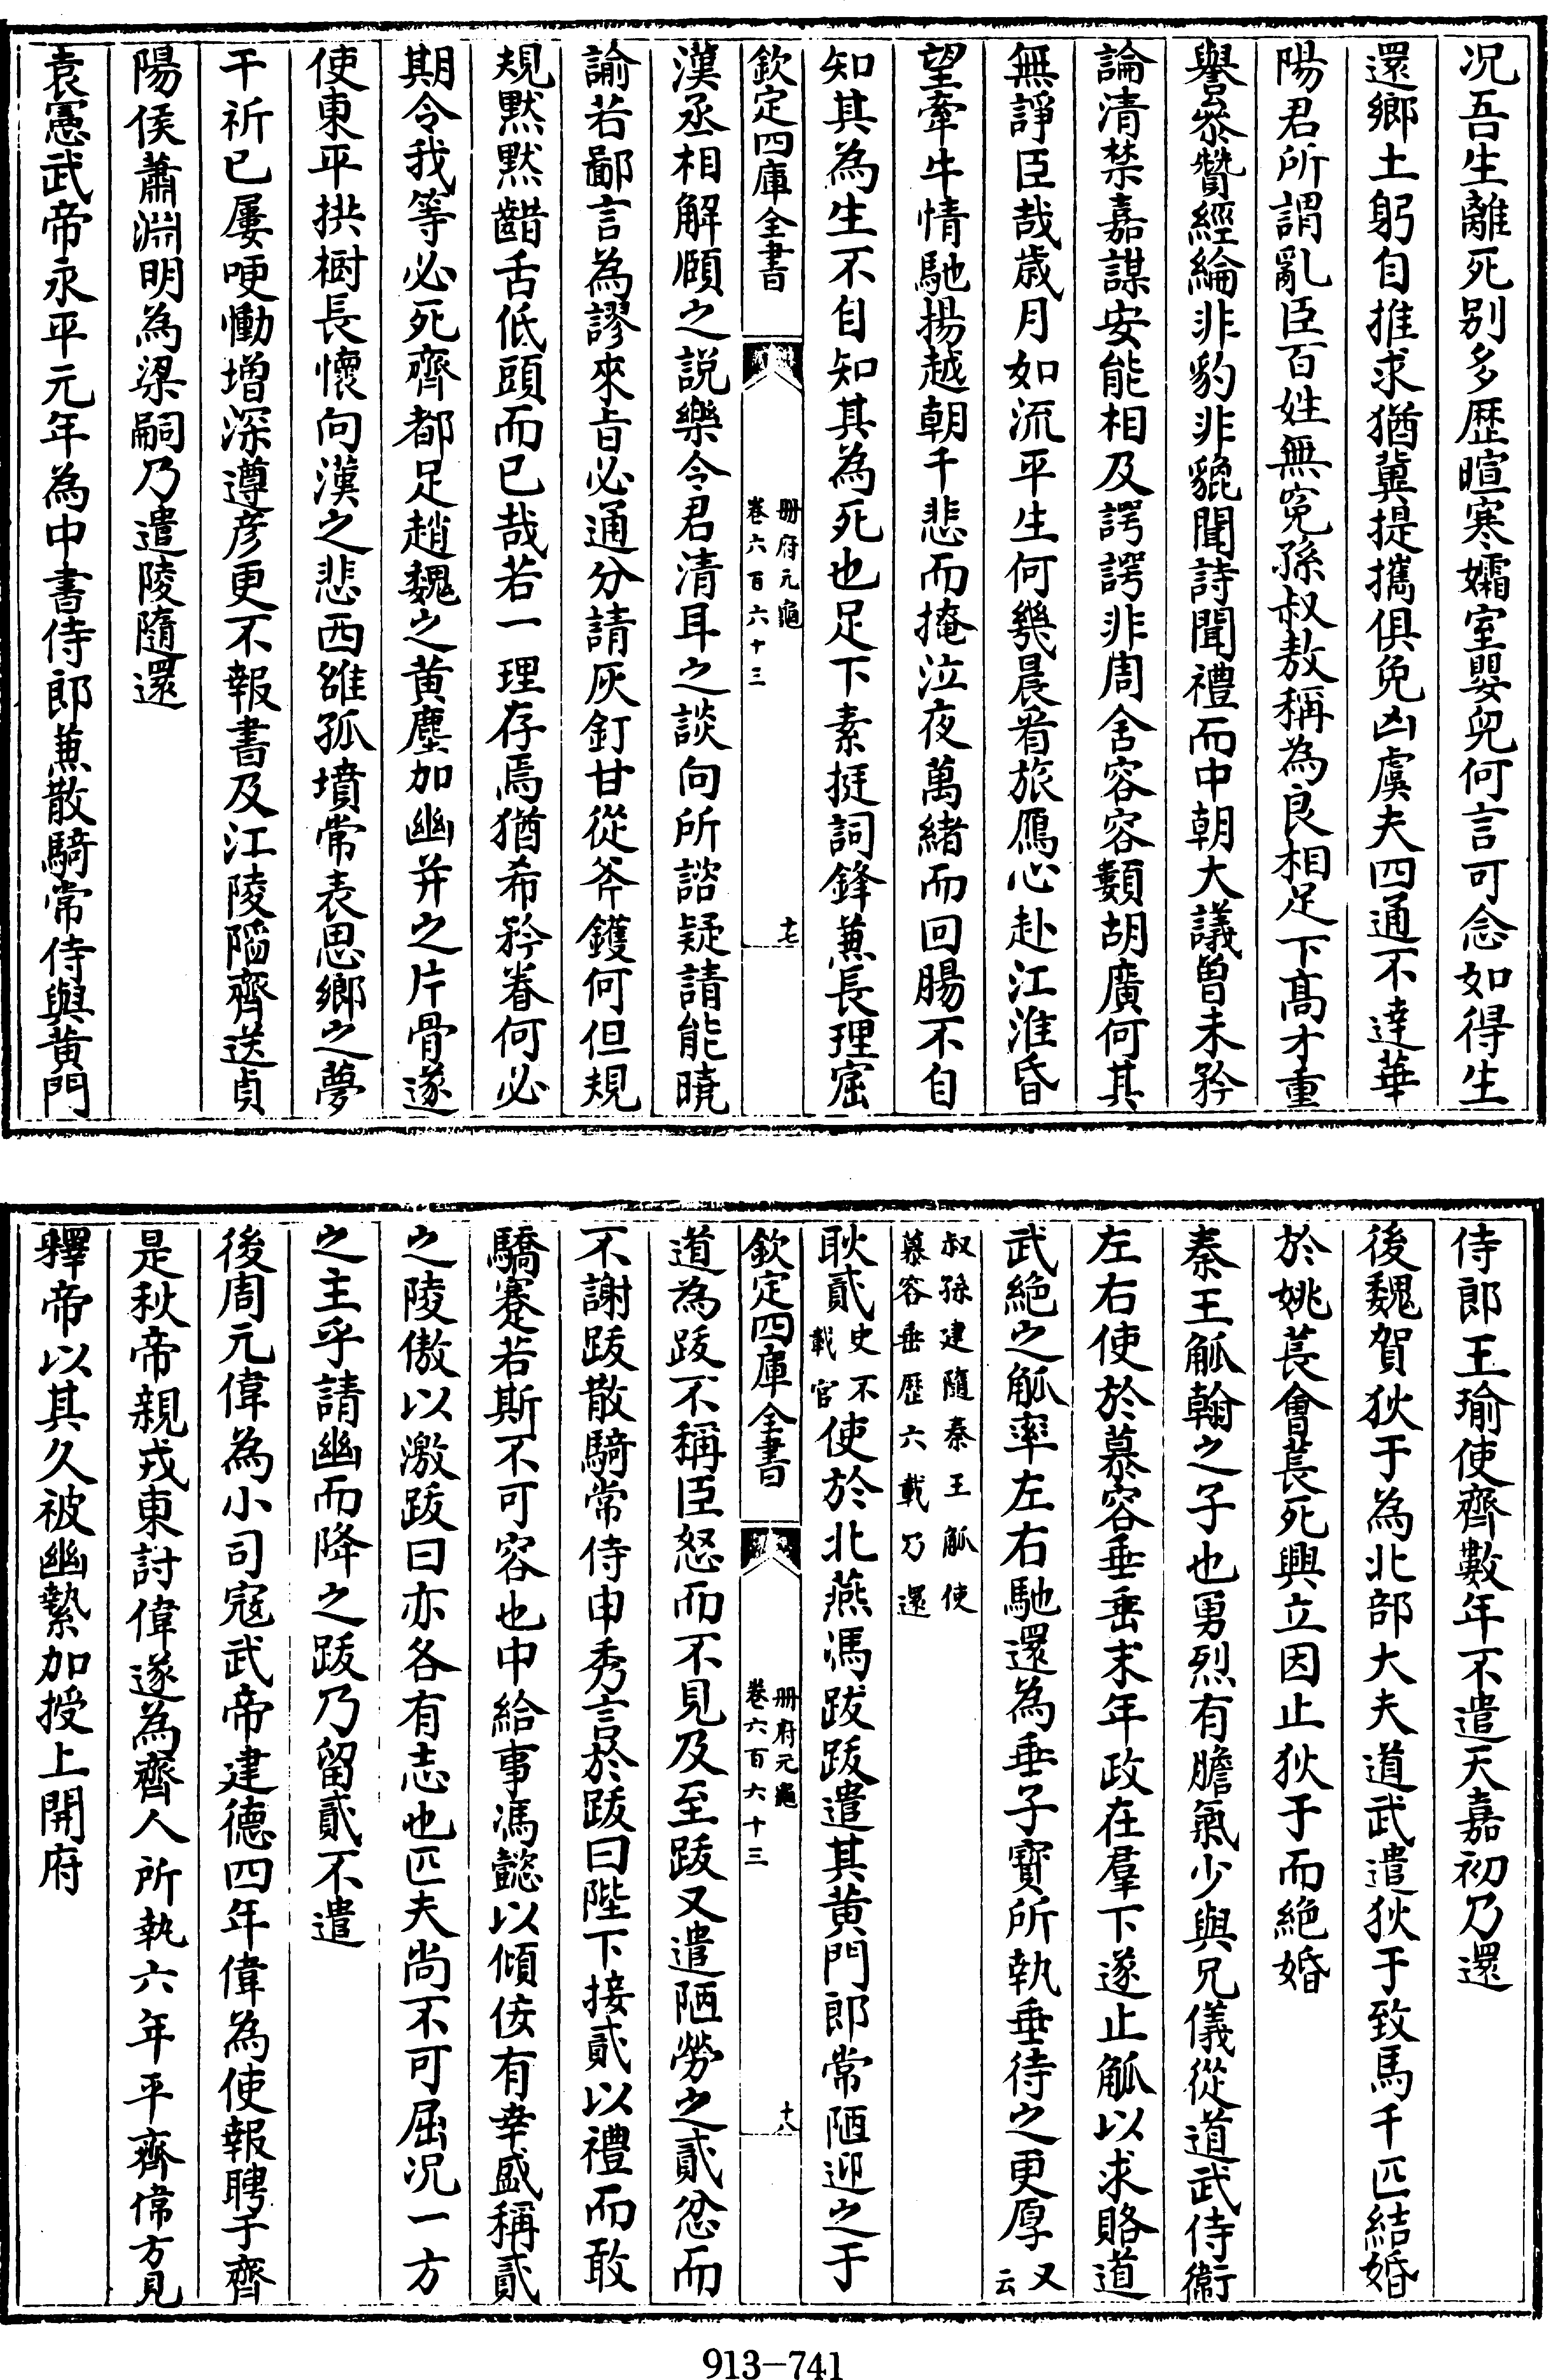 况吾生離死别多歴暄寒孀室嬰兒何言可念如得生
還鄉土躬自推求猶冀提攜俱免凶虞夫四通不達華
陽君所謂亂臣百姓無寃孫叔敖稱為良相足下髙才重
譽參贊經綸非豹非貔聞詩聞禮而中朝大議曽未矜
論清禁嘉謀安能相及諤諤非周舍容容類胡廣何其
無諍臣哉歳月如流平生何幾晨看旅鴈心赴江淮昏
望牽牛情馳揚越朝千悲而掩泣夜萬緒而回腸不自
知其為生不自知其為死也足下素挺詞鋒兼長理窟
欽定四庫全書
冊府元龜
卷六百六十三
十七
漢丞相解頤之説樂令君清耳之談向所諮疑請能曉
諭若鄙言為謬來旨必通分請灰釘甘從斧鑊何但規
規黙黙齰舌低頭而已哉若一理存焉猶希矜眷何必
期令我等必死齊都足趙魏之黄塵加幽并之片骨遂
使東平拱樹長懷向漢之悲西雒孤墳常表思鄉之夢
干祈已屢哽慟增深遵彦更不報書及江陵陷齊送貞
陽侯蕭淵明為梁嗣乃遣陵隨還
袁憲武帝永平元年為中書侍郎兼散騎常侍與黄門
侍郎王瑜使齊數年不遣天嘉初乃還
後魏賀狄于為北部大夫道武遣狄于致馬千匹結婚
於姚萇會萇死興立因止狄于而絶婚
秦王觚翰之子也勇烈有膽氣少與兄儀從道武侍衞
左右使於慕容垂垂末年政在羣下遂止觚以求賂道
武絶之觚率左右馳還為垂子寶所執垂待之更厚又云
叔孫建隨秦王觚使
慕容垂歴六載乃還
耿貳史不載官使於北燕馮跋跋遣其黄門郎常陋迎之于
欽定四庫全書
冊府元龜
卷六百六十三
十八
道為跋不稱臣怒而不見及至跋又遣陋勞之貳忿而
不謝跋散騎常侍申秀言於跋曰陛下接貳以禮而敢
驕蹇若斯不可容也中給事馮懿以傾佞有幸盛稱貳
之陵傲以激跋曰亦各有志也匹夫尚不可屈况一方
之主乎請幽而降之跋乃留貳不遣
後周元偉為小司寇武帝建德四年偉為使報聘于齊
是秋帝親戎東討偉遂為齊人所執六年平齊偉方見
釋帝以其久被幽縶加授上開府
913-741